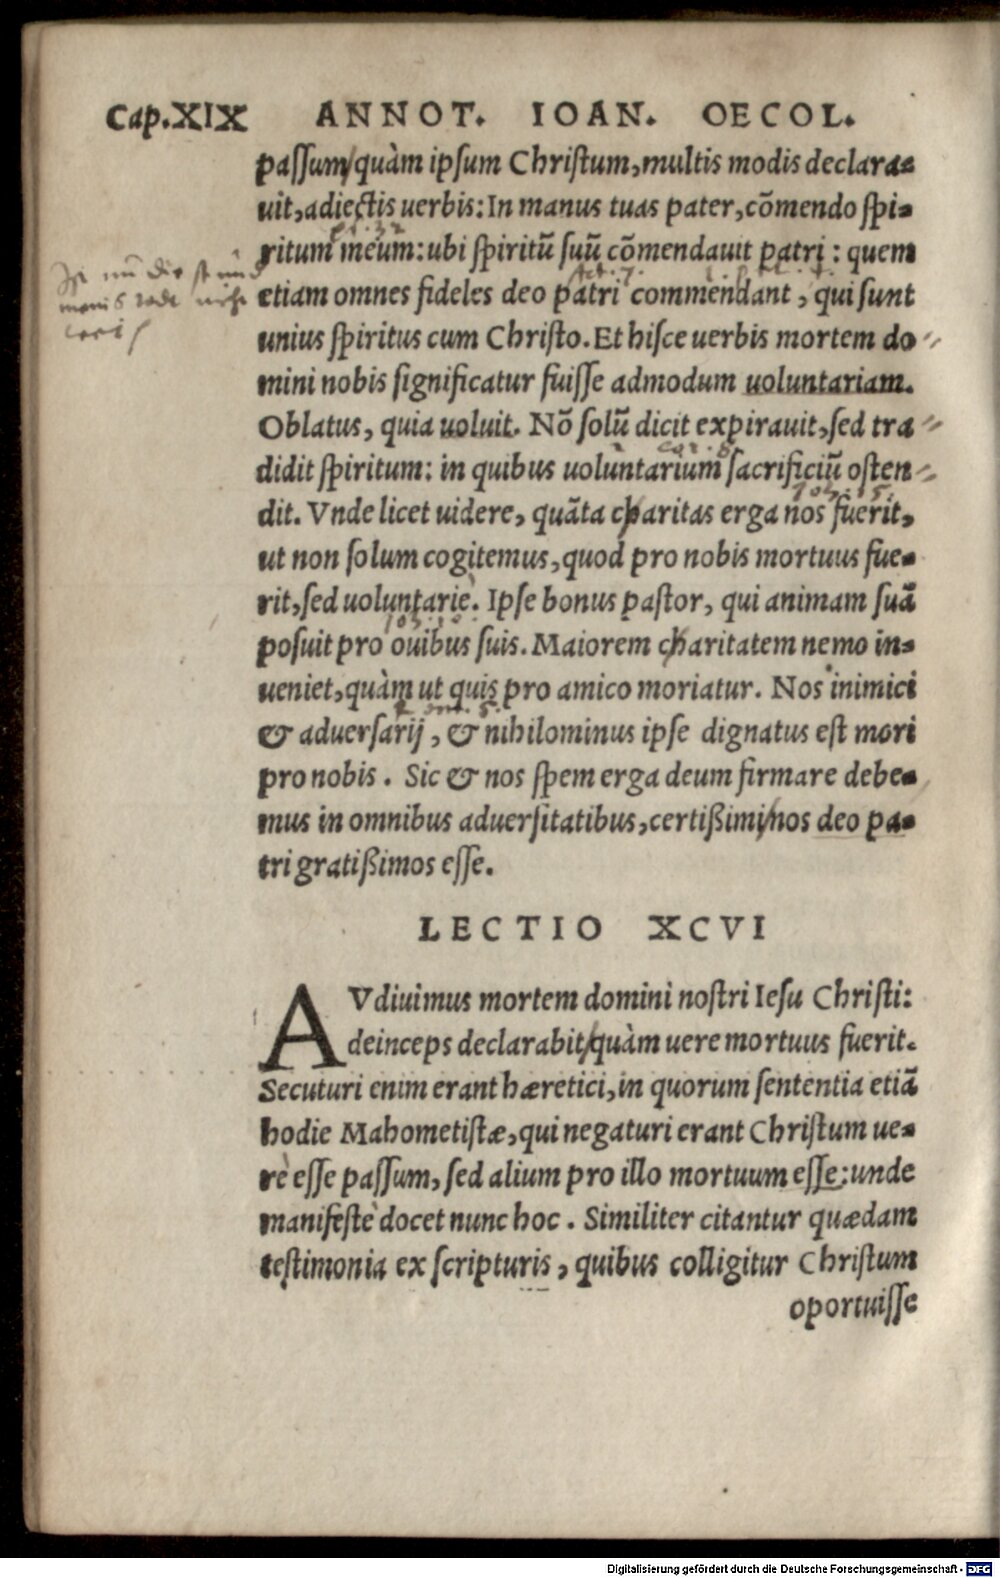 Cap.XIX ANNOT. IOAN. OECOL.
passum, quàm ipsum Christum, multis modis declara-
uit, adiectis uerbis: In manus tuas pater, cōmendo spi-
ritum meum: ubi spiritū suū cōmendauit patri: quem
etiam omnes fideles deo patri commendant, qui sunt
unius spiritus cum Christo. Et hisce uerbis mortem do
mini nobis significatur fuisse admodum uoluntariam.
Oblatus, quia uoluit. Nō solū dicit expirauit, sed tra
didit spiritum: in quibus uoluntarium sacrificiū osten
dit. Vnde licet uidere, quāta charitas erga nos fuerit,
ut non solum cogitemus, quod pro nobis mortuus fue-
rit, sed uoluntarie. Ipse bonus pastor, qui animam suā
posuit pro ouibus suis. Maiorem charitatem nemo in-
ueniet, quàm ut quis pro amico moriatur. Nos inimici
& aduersarij, & nihilominus ipse dignatus est mori
pro nobis. Sic & nos spem erga deum firmare debe-
mus in omnibus aduersitatibus, certißimi, nos deo pa-
tri gratißimos esse.
LECTIO XCVI
AVdiuimus mortem domini nostri Iesu Christi:
deinceps declarabit, quàm uere mortuus fuerit.
Secuturi enim erant hæretici, in quorum sententia etiā
hodie Mahometistæ, qui negaturi erant Christum ue-
rè esse passum, sed alium pro illo mortuum esse: unde
manifestè docet nunc hoc. Similiter citantur quædam
testimonia ex scripturis, quibus colligitur Christum
oportuisse
Digitalisierung gefördert durch die Deutsche Forschungsgemeinschaft - DFG